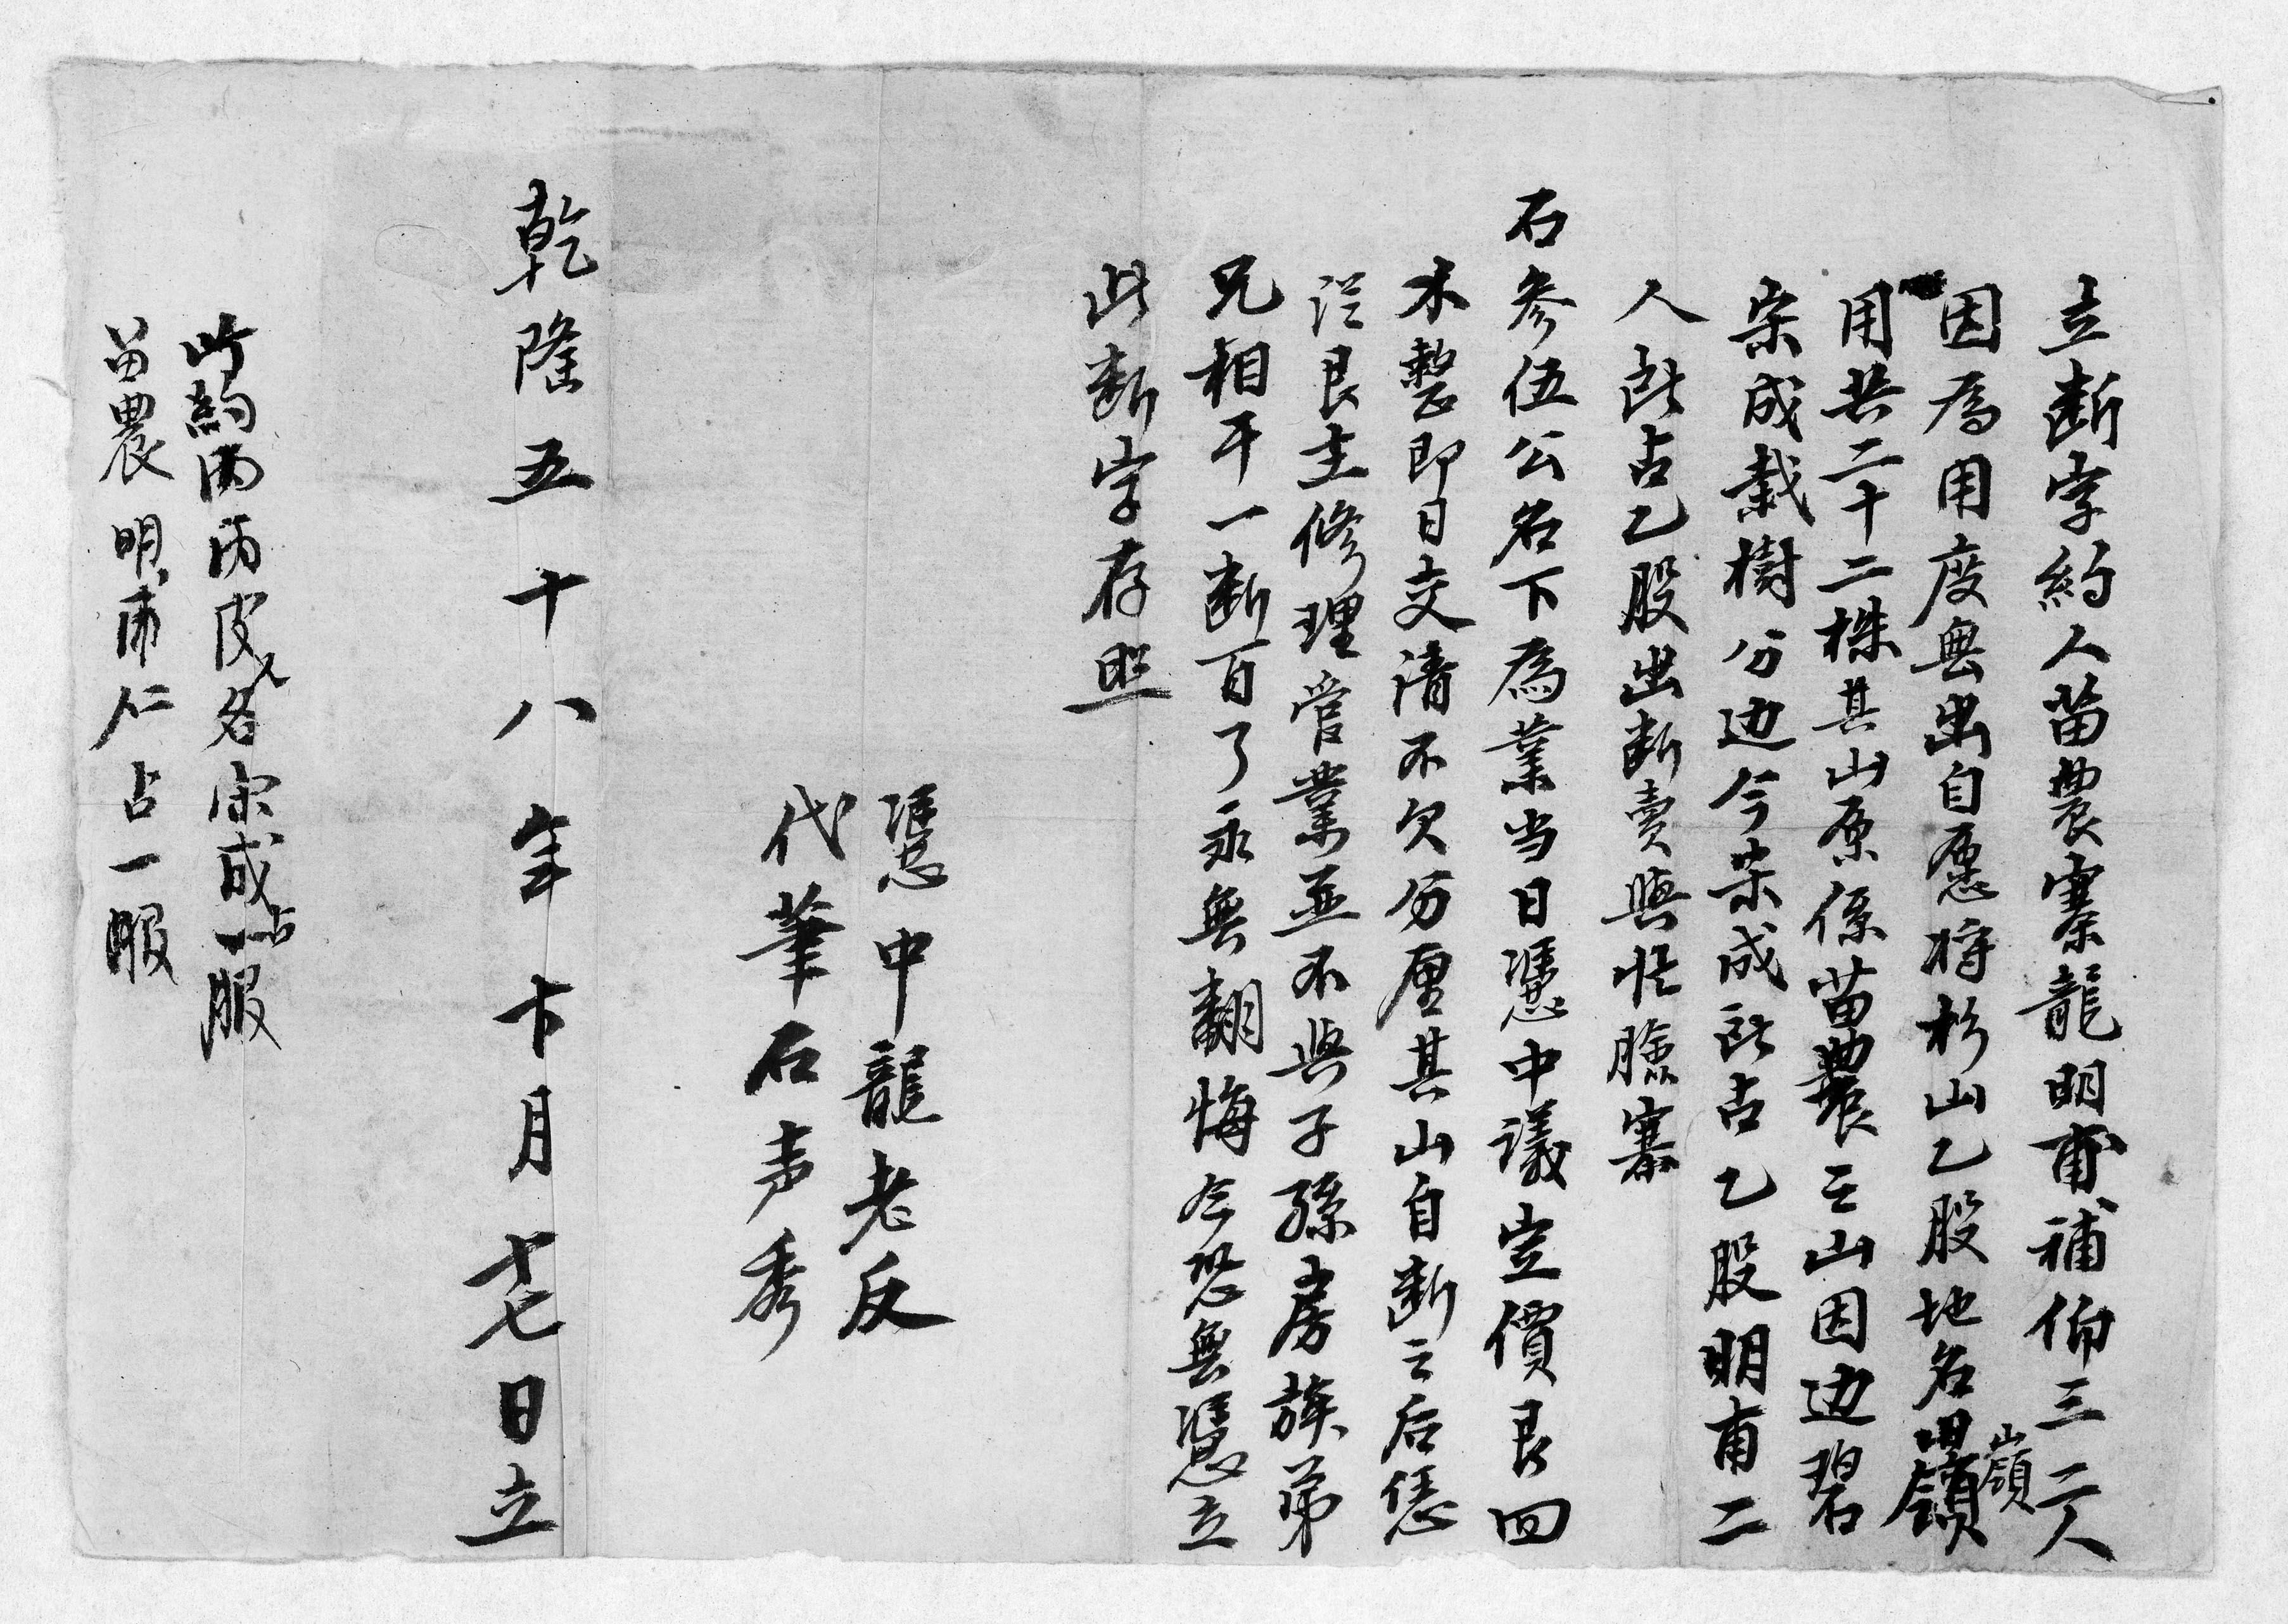 立断字約人苗農寨龍明甫補伯三二人
因為用度無出自愿將杉山乙股地名田嶺嶺
用共二十二株其山原係苗農之山因边碧
宋成栽樹分边今宋成所占乙股明甫二
人所占乙股出断賣與帐臉寨
石参伍公名下為業当日憑中議定價艮四
木整即日交清不欠分厘其山自断之后恁
従艮主修理管業並不與子孫房族弟
兄相干一断百了永無翻悔今恐無憑立
此断字存照
憑中龍老反
代筆石声秀
乾隆五十八年十月十七日立
此約兩
皮人名宋成占一服
苗農明甫仁占一服